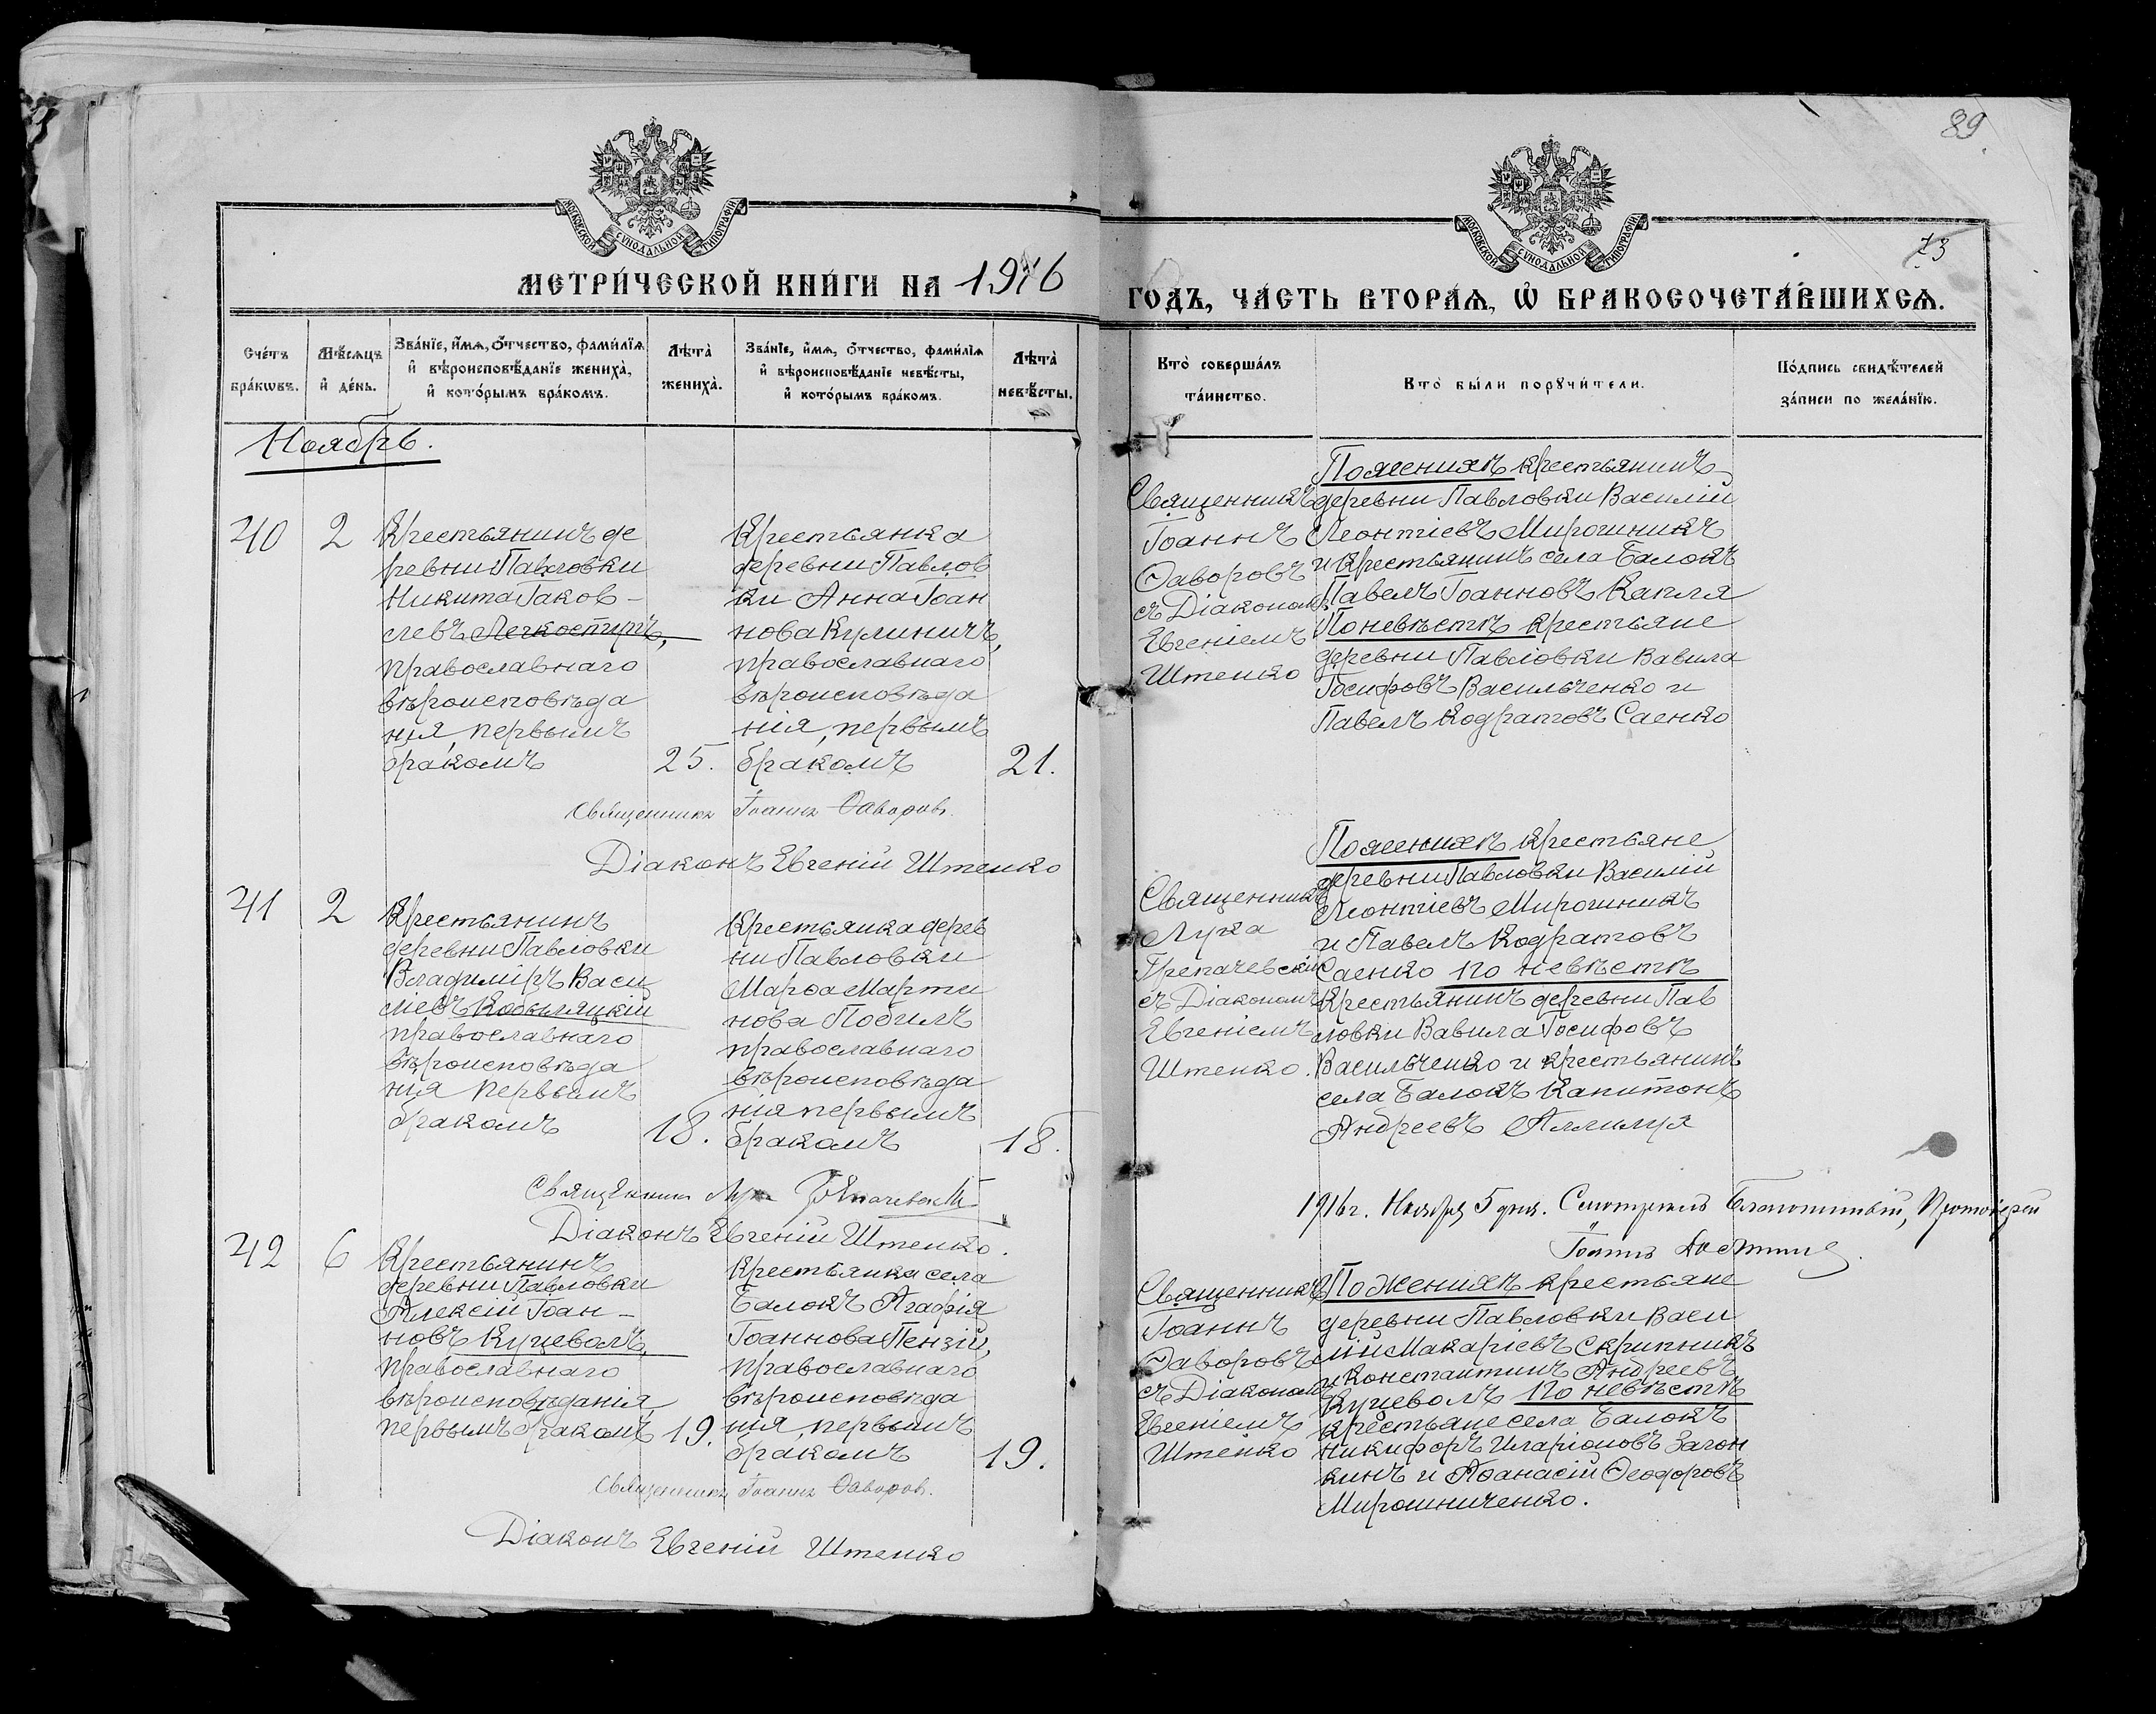 89
МОСКОВСКОЙ СУНОДАЛЬНОЙ ТИПОГРАФІИ
МОСКОВСКОЙ СУНОДАЛЬНОЙ ТИПОГРАФІИ
73
МЕТРИ́ЧЕСКОЙ КНИ́ГИ НА 1916
ГОДЪ, ЧА́СТЬ ВТОРА́Ѧ, Ѽ БРАКОСОЧЕТА́ВШИХСѦ.
Сче́тъ
бра́кωвъ.
Мѣ́сѧцъ
и҆ де́нь.
Зва́нїе, и҆́мѧ, ѻ҆́тчество, фами́лїѧ
и҆ вѣроисповѣ́данїе жениха̀,
и҆ кото́рымъ бра́комъ.
Лѣта̀
жениха̀.
Зва́нїе, и҆́мѧ, ѻ҆́тчество, фами́лїѧ
и҆ вѣроисповѣ́данїе невѣ́сты,
и҆ кото́рымъ бра́комъ.
Лѣта̀
невѣ́сты.
Кто̀ соверша́лъ
та́инство.
Кто̀ бы́ли порꙋчи́тели.
По́дпись свидѣ́телей
за́писи по жела́нїю.
Ноябрь.
40
2
Крестьянинъ де
ревни Павловки
Никита Іаков-
левъ Легкоступъ,
православнаго
вѣроисповѣда
нія, первымъ
бракомъ
25.
Крестьянка
деревни Павлов
ки Анна Іоан
нова Кулиничъ,
православнаго
вѣроисповѣда
нія, первымъ
бракомъ
21.
Священникъ
Іоаннъ
Ѳаворовъ
съ Діакономъ
Евгеніемъ
Штепко
По женихѣ крестьянинъ
деревни Павловки Василій
Леонтіевъ Мирошникъ
и крестьянинъ села Балокъ
Павелъ Іоанновъ Капля
По невѣстѣ крестьяне
деревни Павловки Вавила
Іосифовъ Васильченко и
Павелъ Кодратовъ Саенко
Священникъ Іоаннъ Ѳаворовъ.
Діаконъ Евгеній Штепко
41
2
Крестьянинъ
деревни Павловки
Владиміръ Васи
ліевъ Кобыляцкій
православнаго
вѣроисповѣда
нія первымъ
бракомъ
18.
Крестьянка дерев
ни Павловки
Марѳа Марти
нова Побиль
православнаго
вѣроисповѣда
нія первымъ
бракомъ
18.
Священникъ
Лука
съ Діакономъ
Евгеніемъ
Штепко.
По женихѣ крестьяне
деревни Павловки Василій
Леонтіевъ Мирошникъ
и Павелъ Кодратовъ
Саенко по невѣстѣ
Крестьянинъ деревни Пав
ловки Вавила Іосифовъ
Васильченко и крестьянинъ
села Балокъ Капитонъ
Андреевъ
Священникъ Лука
Діаконъ Евгеній Штепко.
1916 г. Ноября 5 дня. Смотрелъ Благочинный, Протоіерей
Іоаннъ
42
6
Крестьянинъ
деревни Павловки
Алексій Іоан-
новъ Куцеволъ,
православнаго
вѣроисповѣданія
первымъ бракомъ
19.
Крестьянка села
Балокъ Агафія
Іоаннова Пензій,
православнаго
вѣроисповѣда
нія, первымъ
бракомъ
19.
Священникъ
Іоаннъ
Ѳаворовъ
съ Діакономъ
Евгеніемъ
Штепко
По женихѣ крестьяне
деревни Павловки Васи
лій Макаріевъ Скрипникъ
и Константинъ Андреевъ
Куцеволъ по невѣстѣ
крестьяне села Балокъ
Никифоръ Иларіоновъ Загон
кинъ и Аѳанасій Ѳеодоровъ
Мирошниченко.
Священникъ Іоаннъ Ѳаворовъ.
Діаконъ Евгеній Штепко